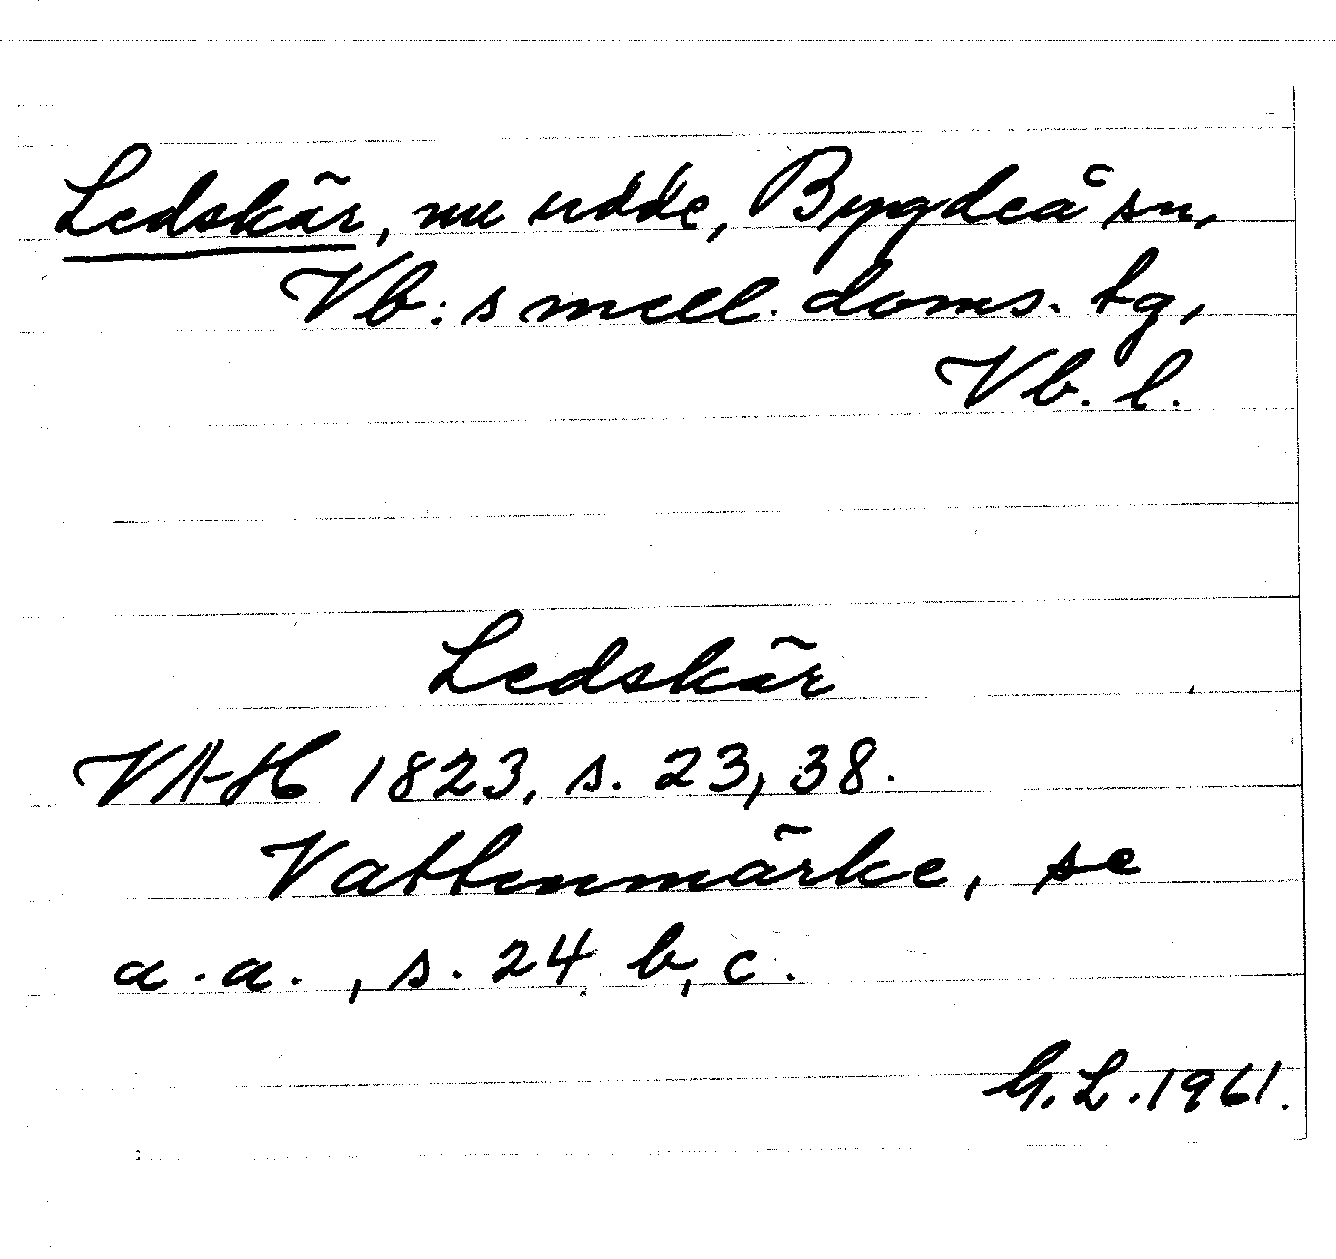 Ledskär, nu udde, Bygdeå sn,
Vb:s mell. doms. tg,
Vb. l.
Ledskär
VA-H 1823, s. 23, 38.
Vattenmärke, se
a.a., s. 24 b, c.
G.L. 1961.